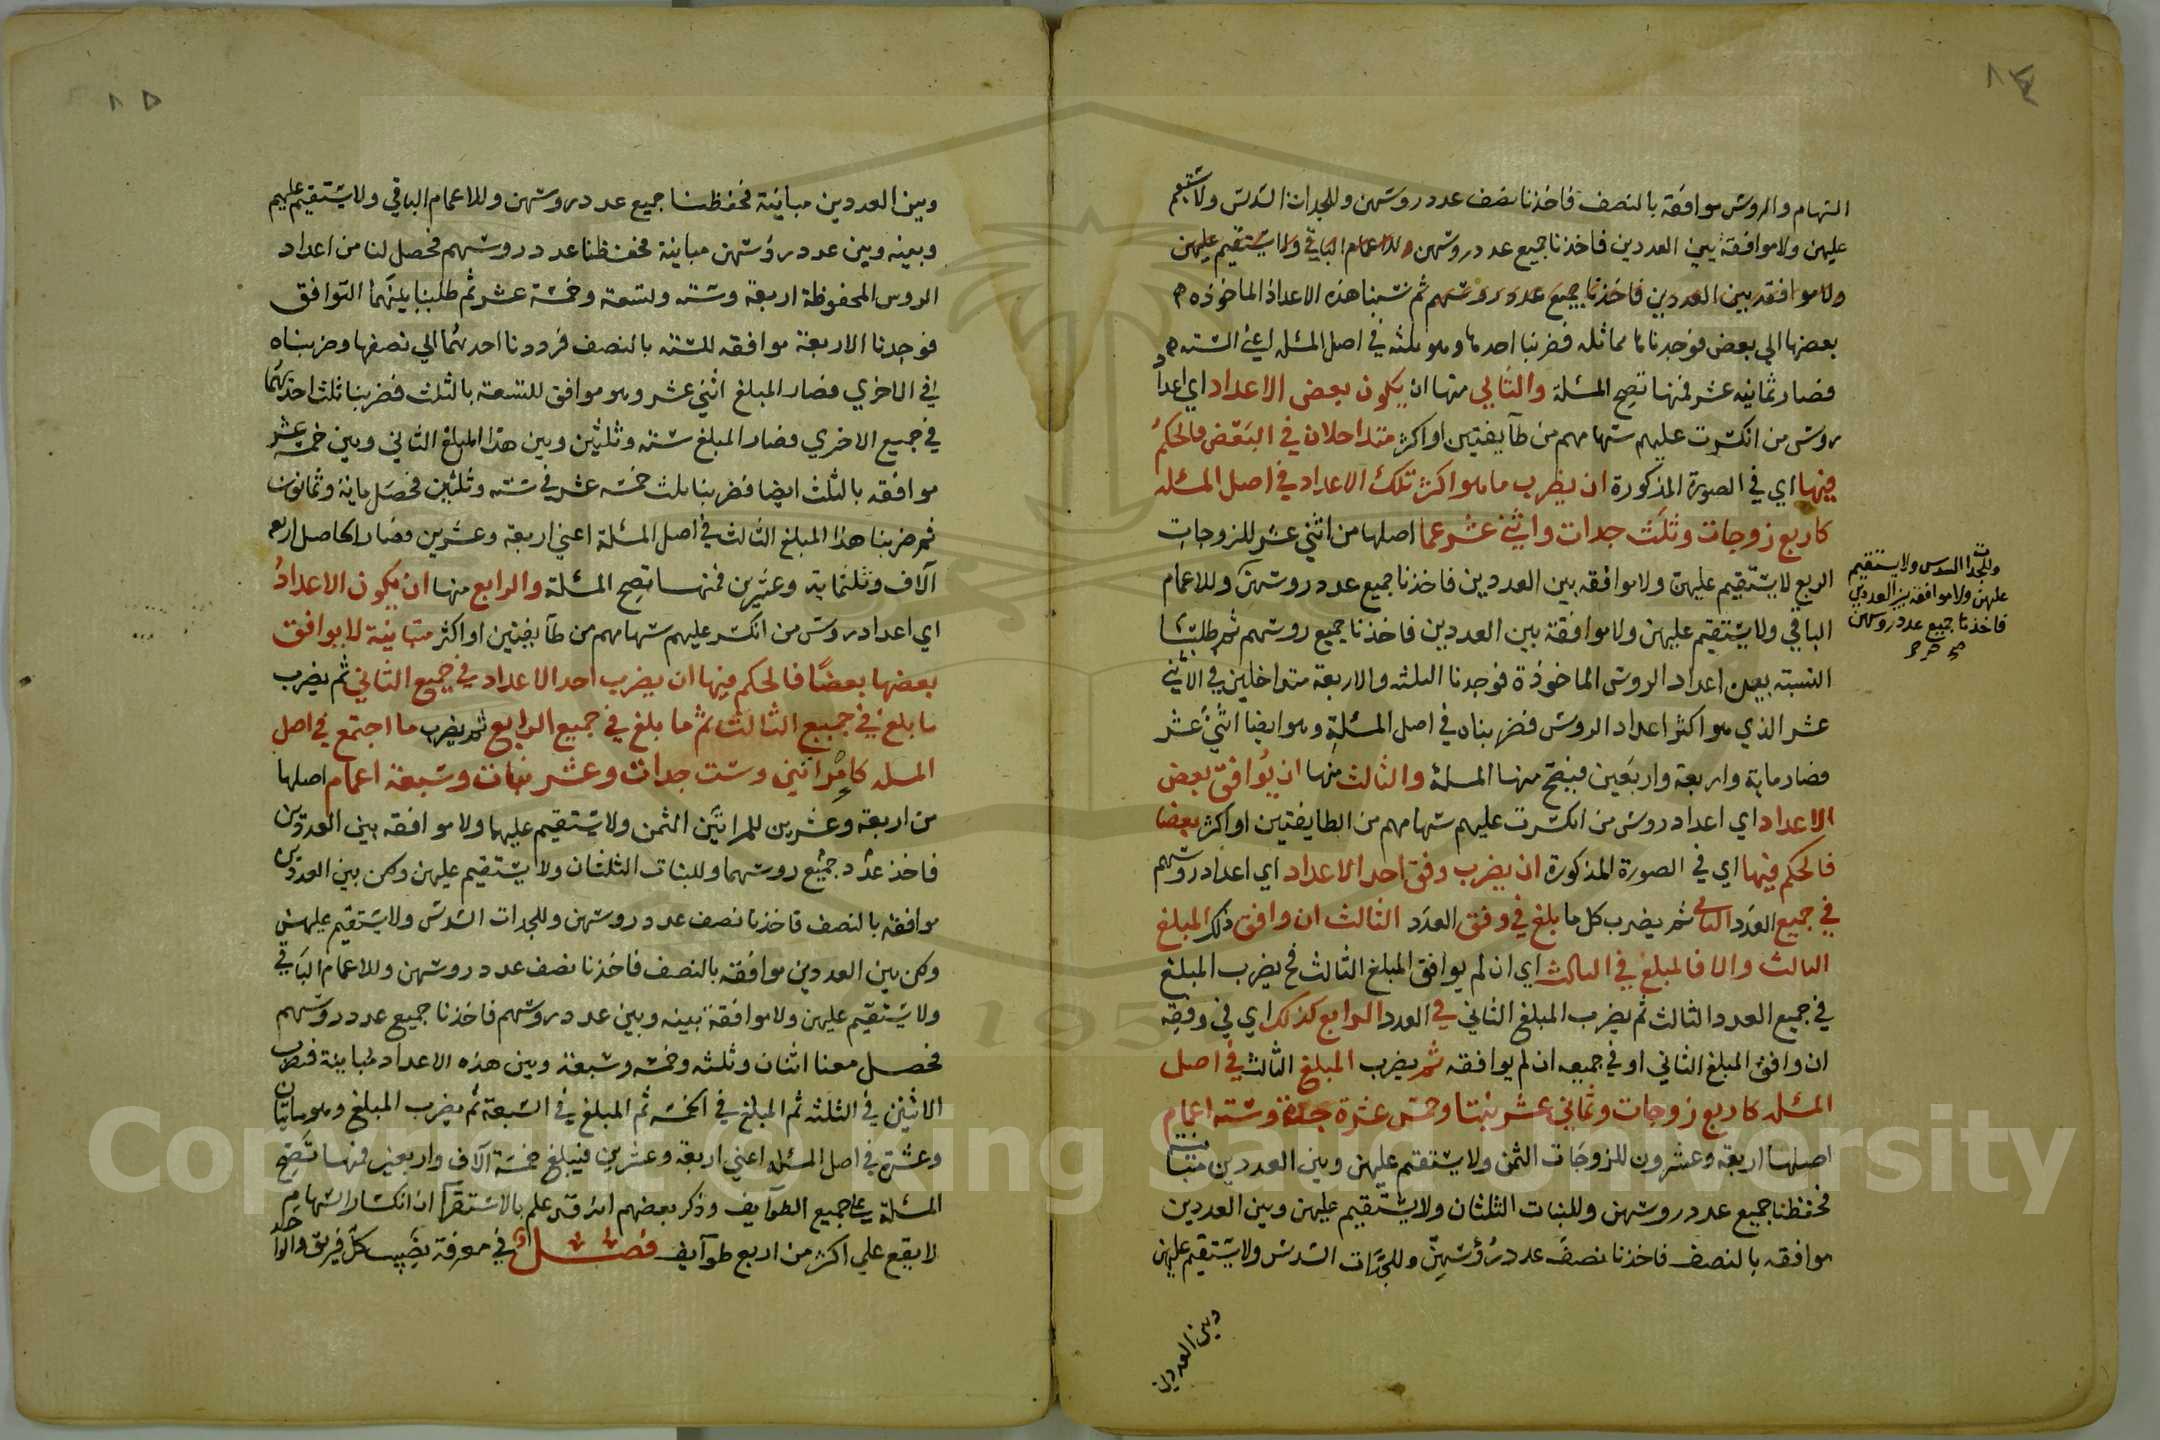 ٨٤
السهام والروس موافقة بالنصف فاخذنا نصف عدد روسهن وللجدات السدس ولا يستقيم
عليهن ولا موافقة بين العددين فاخذنا جميع عدد روسهن وللاعمام الباقي ولا يستقيم عليهن
ولا موافقه بين العددين فاخذنا جميع عدد روسهم ثم نسبنا هذه الاعداد الماخوذه
بعضها الي بعض فوجدناها مماثله فضربنا احدها وهو ثلثه في اصل المسئله اعني السته
فصار ثمانيه عشر فمنها تصح المسئلة والثاني منها ان يكون بعض الاعداد اي اعداد
روس من انكسرت عليهم سهامهم من طايفتين او اكثر متداخلان في البعض فالحكم
فيها اي في الصورة المذكورة ان يضرب ما هو اكثر تلك الاعداد في اصل المسئله
كاربع زوجات وثلث جدات واثني عشر عما اصلها من اثني عشر للزوجات
الربع لا يستقيم عليهن ولا موافقة بين العددين فاخذنا جميع عدد روسهن وللاعمام
الباقي ولا يستقيم عليهن ولا موافقة بين العددين فاخذنا جميع روسهم ثم طلبنا
النسبته بين اعداد الروس الماخوذة فوجدنا الثلثه والاربعة متداخلين في الاثني
عشر الذي هو اكثر اعداد الروس فضربناه في اصل المسئلة وهو ايضا اثني عشر
فصار ماية واربعة واربعين فيصح منها المسلة والثالث منها ان يوافق بعض
الاعداد اي اعداد روس من انكسرت عليهم سهامهم من الطايفتين او اكثر بعضا
فالحكم فيها اي في الصورة المذكورة ان يضرب وفق احد الاعداد اي اعداد روسهم
في جميع العدد الثاني ثم يضرب كل ما بلغ في وفق العدد الثالث ان وافق ذلك المبلغ
الثالث والا فالمبلغ في الثالث اي ان لم يوافق المبلغ الثالث فح يضرب المبلغ
في جميع العدد الثالث ثم يضرب المبلغ الثاني في العدد الرابع كذلك اي في وفقه
ان وافق المبلغ الثاني او في جميعه ان لم يوافقه ثم يضرب المبلغ الثالث في اصل
المسئله كاربع زوجات وثماني عشر بنتا وخمس عشرة جدة وسته اعمام
اصلها اربعة وعشرون للزوجات الثمن ولا يستقيم عليهن وبين العددين متباينة
فحفظنا جميع عدد روسهن وللبنات الثلثان ولا يستقيم عليهن وبين العددين
موافقه بالنصف فاخذنا نصف عدد رؤسهن وللجدات السدس ولا يستقيم عليهن
وبين العددين
وللجدات السدس ولا يستقيم
عليهن ولا موافقة بين العددين
فاخذنا جميع عدد روسهن
صح
٨٥
وبين العددين مباينة فحفظنا جميع عدد روسهن وللاعمام الباقي ولا يستقيم عليهم
وبينه وبين عدد رؤسهن مباينة فحفظنا عدد روسهم فحصل لنا من اعداد
الروس المحفوظة اربعة وسته وتسعة وخمسة عشر ثم طلبنا بينهما التوافق
فوجدنا الاربعة موافقه للسته بالنصف فرددنا احديهما الي نصفها وضربناه
في الاخري فصار المبلغ اثني عشر وهو موافق للتسعة بالثلث فضربنا ثلث احديهما
في جميع الاخري فصار المبلغ سته وثلثين وبين هذا المبلغ الثاني وبين خمسة عشر
موافقه بالثلث ايضا فضربنا ثلث خمسه عشر في سته وثلثين فحصل ماية وثمانون
ثم ضربنا هذا المبلغ الثالث في اصل المسئلة اعني اربعة وعشرين فصار الحاصل اربع
آلاف وثلثماية وعشرين فمنها تصح المسئلة والرابع منها ان يكون الاعداد
اي اعداد روس من انكسر عليهم سهامهم من طآيفتين او اكثر متباينة لا يوافق
بعضها بعضًا فالحكم فيها ان يضرب احد الاعداد في جميع الثاني ثم يضرب
ما بلغ في جميع الثالث ثم ما بلغ في جميع الرابع ثم يضرب ما اجتمع في اصل
المسله كامراتين وست جدات وعشر بنات وسبعة اعمام اصلها
من اربعة وعشرين للمراتين الثمن ولا يستقيم عليهما ولا موافقه بين العددين
فاخذ عدد جميع روسهما وللبنات الثلثان ولا يستقيم عليهن ولكن بين العددين
موافقه بالنصف فاخذنا نصف عدد روسهن وللجدات السدس ولا يستقيم عليهن
ولكن بين العددين موافقه بالنصف فاخذنا نصف عدد روسهن وللاعمام الباقي
ولا يستقيم عليهن ولا موافقة بينه وبين عدد روسهم فاخذنا جميع عدد روسهم
فحصل معنا اثنان وثلثه وخمسه وسبعة وبين هذه الاعداد مباينة فيضرب
الاثنين في الثلثه ثم المبلغ في الخمسه ثم المبلغ في السبعة ثم يضرب المبلغ وهو مايتان
وعشرة في اصل المسئله اعني اربعة وعشرين فيبلغ خمسة آلاف واربعين فمنها تصح
المسئلة علي جميع الطوآيف وذكر بعضهم انه قد علم بالاستقرآ ان انكسار السهام
لا يقع علي اكثر من اربع طوآيف فصل في معرفة نصيب كل فريق والواحد
Copyright © King Saud University
1957